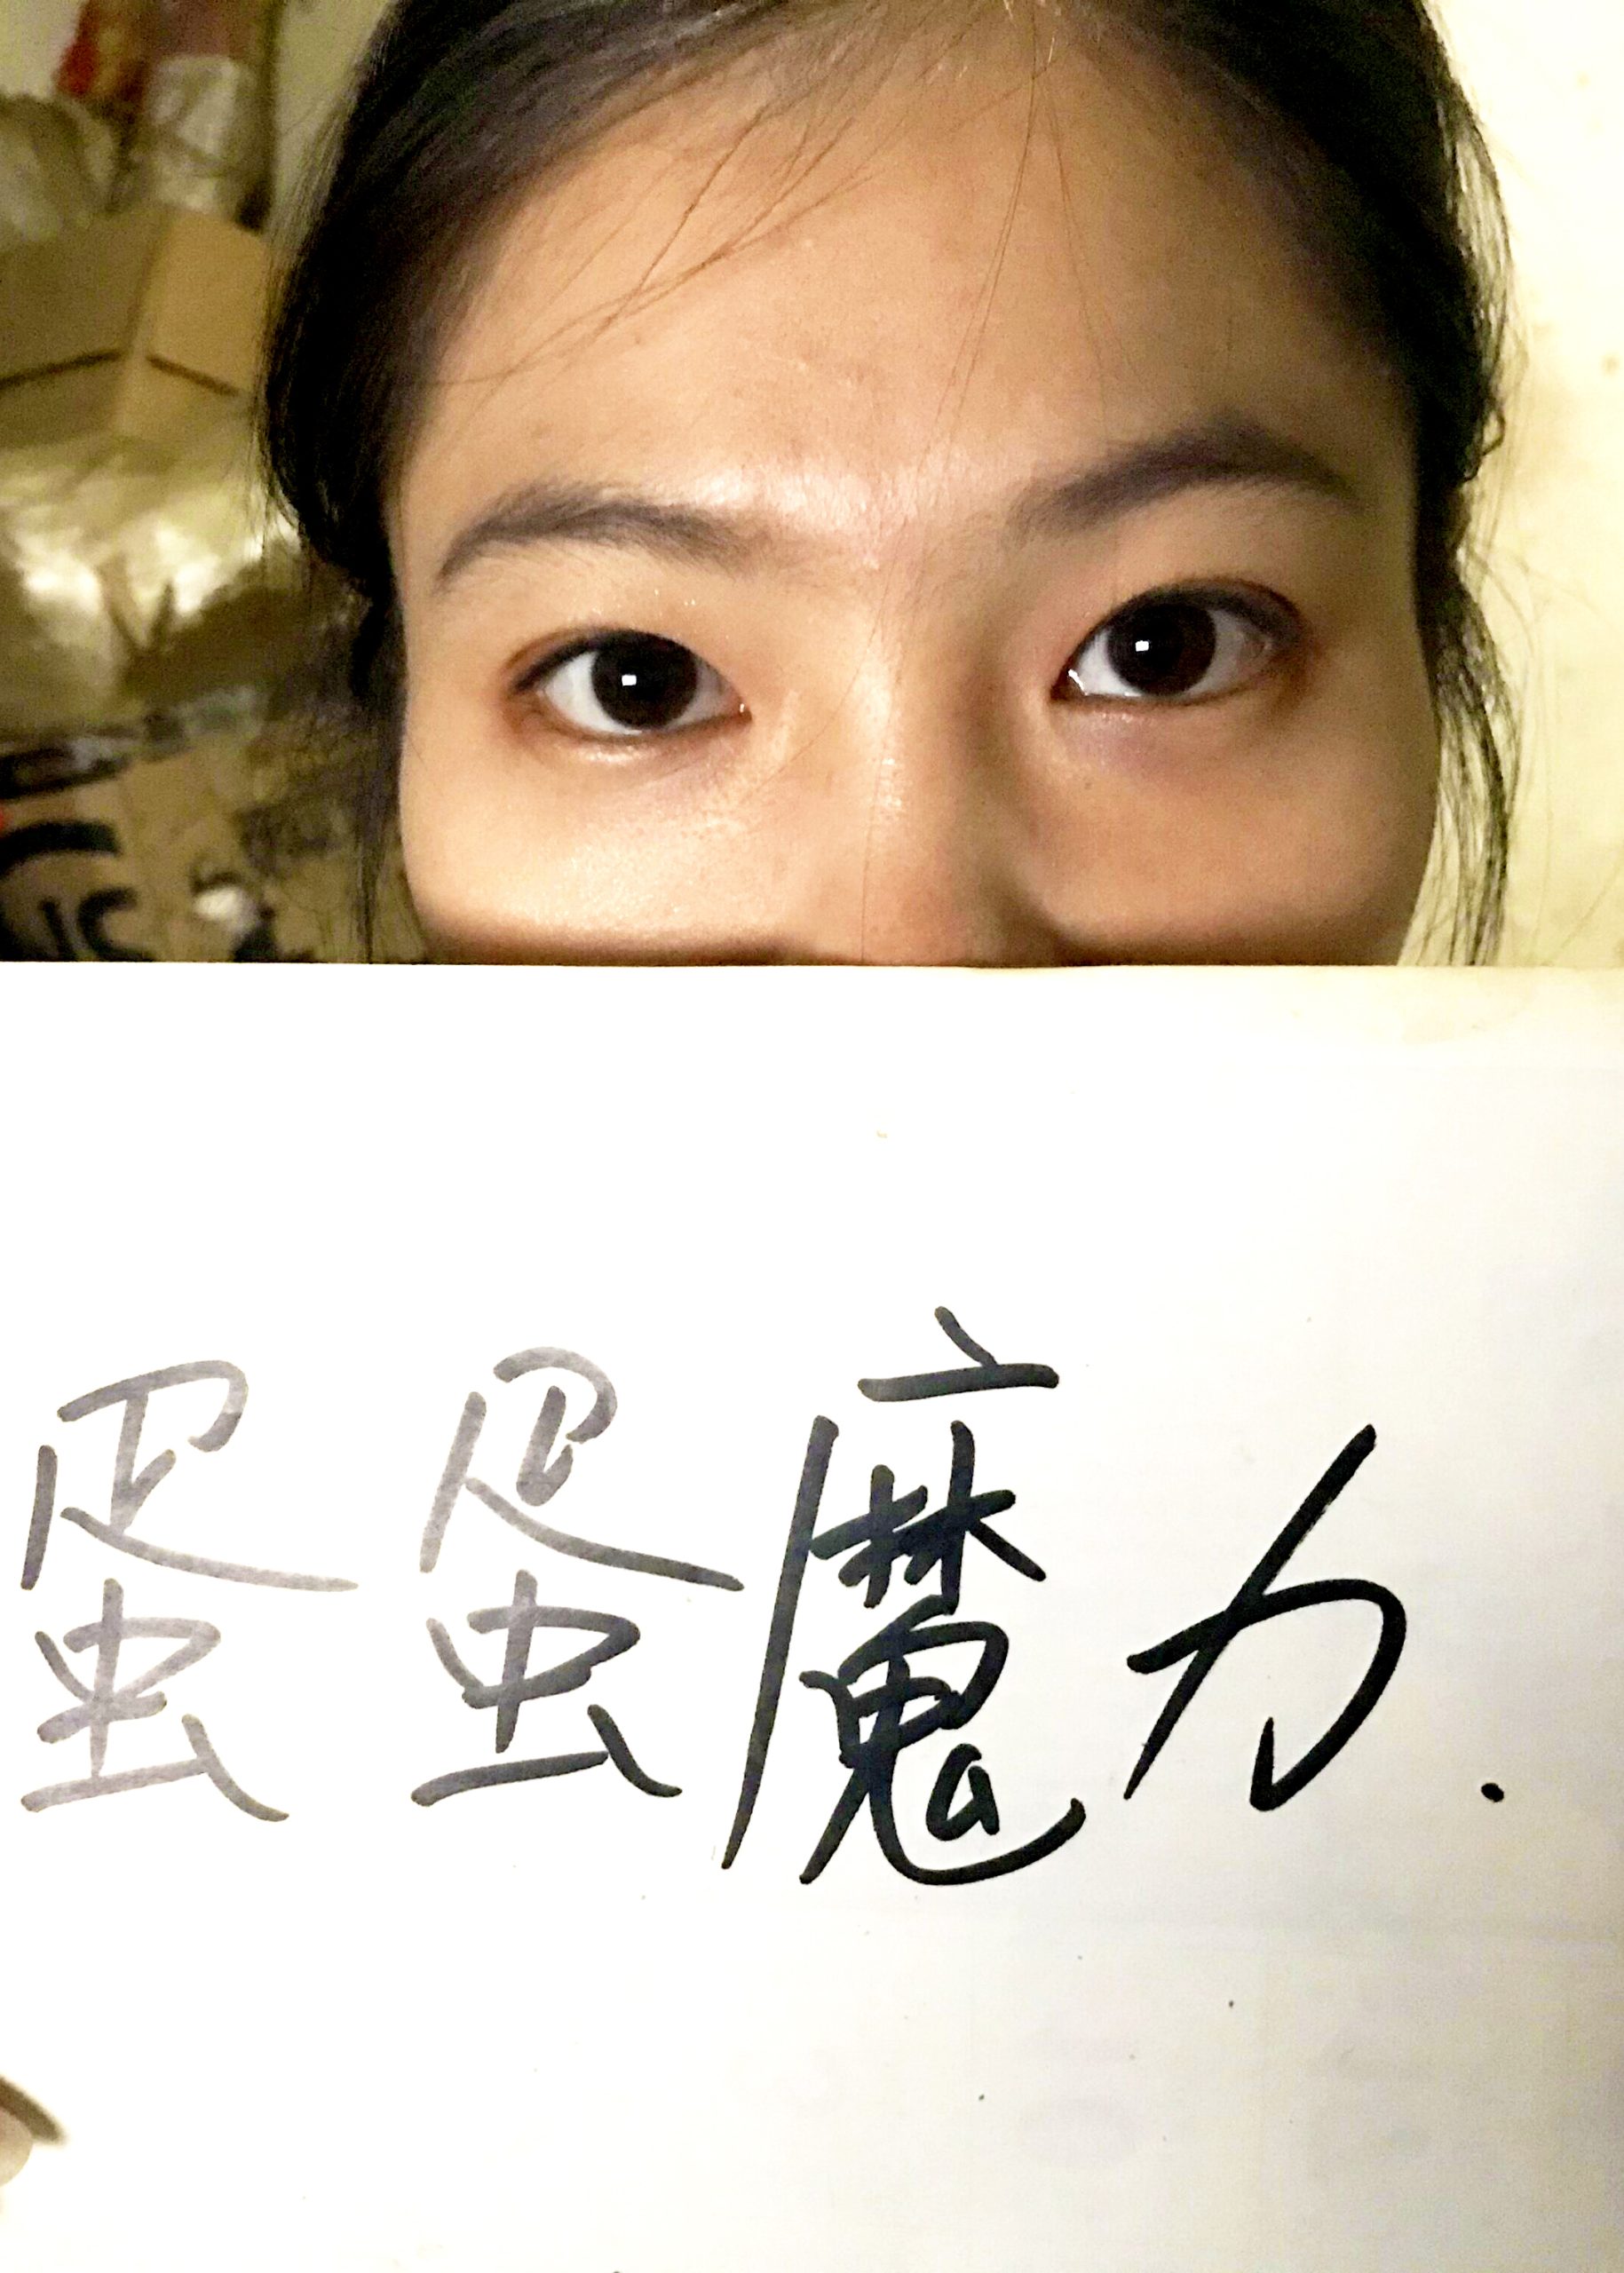 蛋蛋魔力.